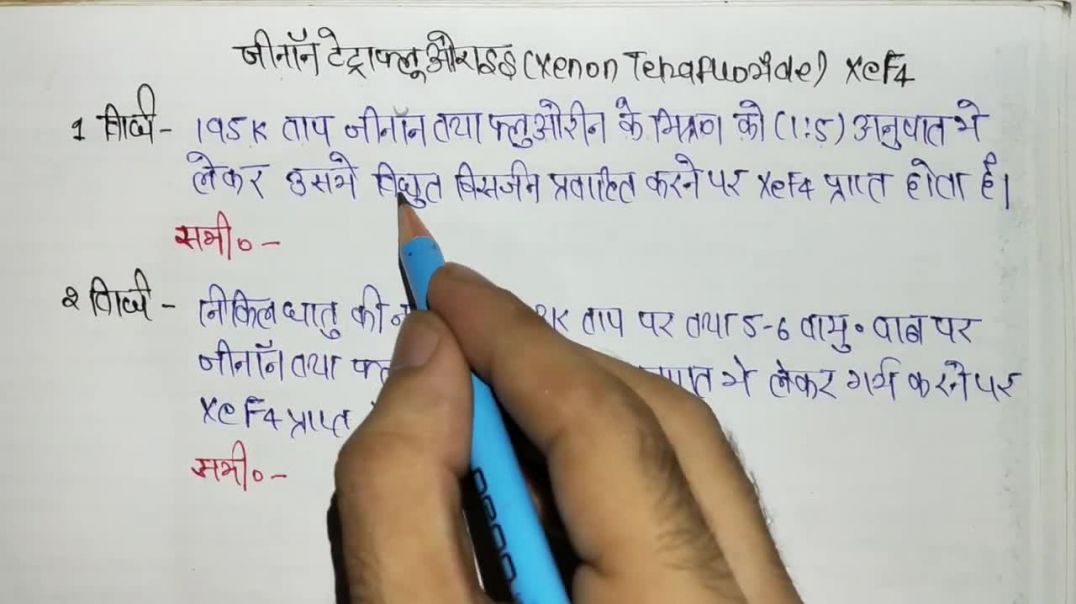 जीनॉन टेट्राफ्लूओराइड (Xenon Tetrafluoride) XeF4
1 विधि - 195K ताप जीनॉन तथा फ्लुओरीन के मिश्रण को (1:5) अनुपात मे
लेकर उसमे विधुत विसर्जन प्रवाहित करने पर XeF4 प्राप्त होता है।
समी० -
2 विधि - निकिल धातु की K ताप पर तथा 5-6 वायु० दाब पर
जीनॉन तथा मे लेकर गर्म करने पर
XeF4 प्राप्त
समी० -